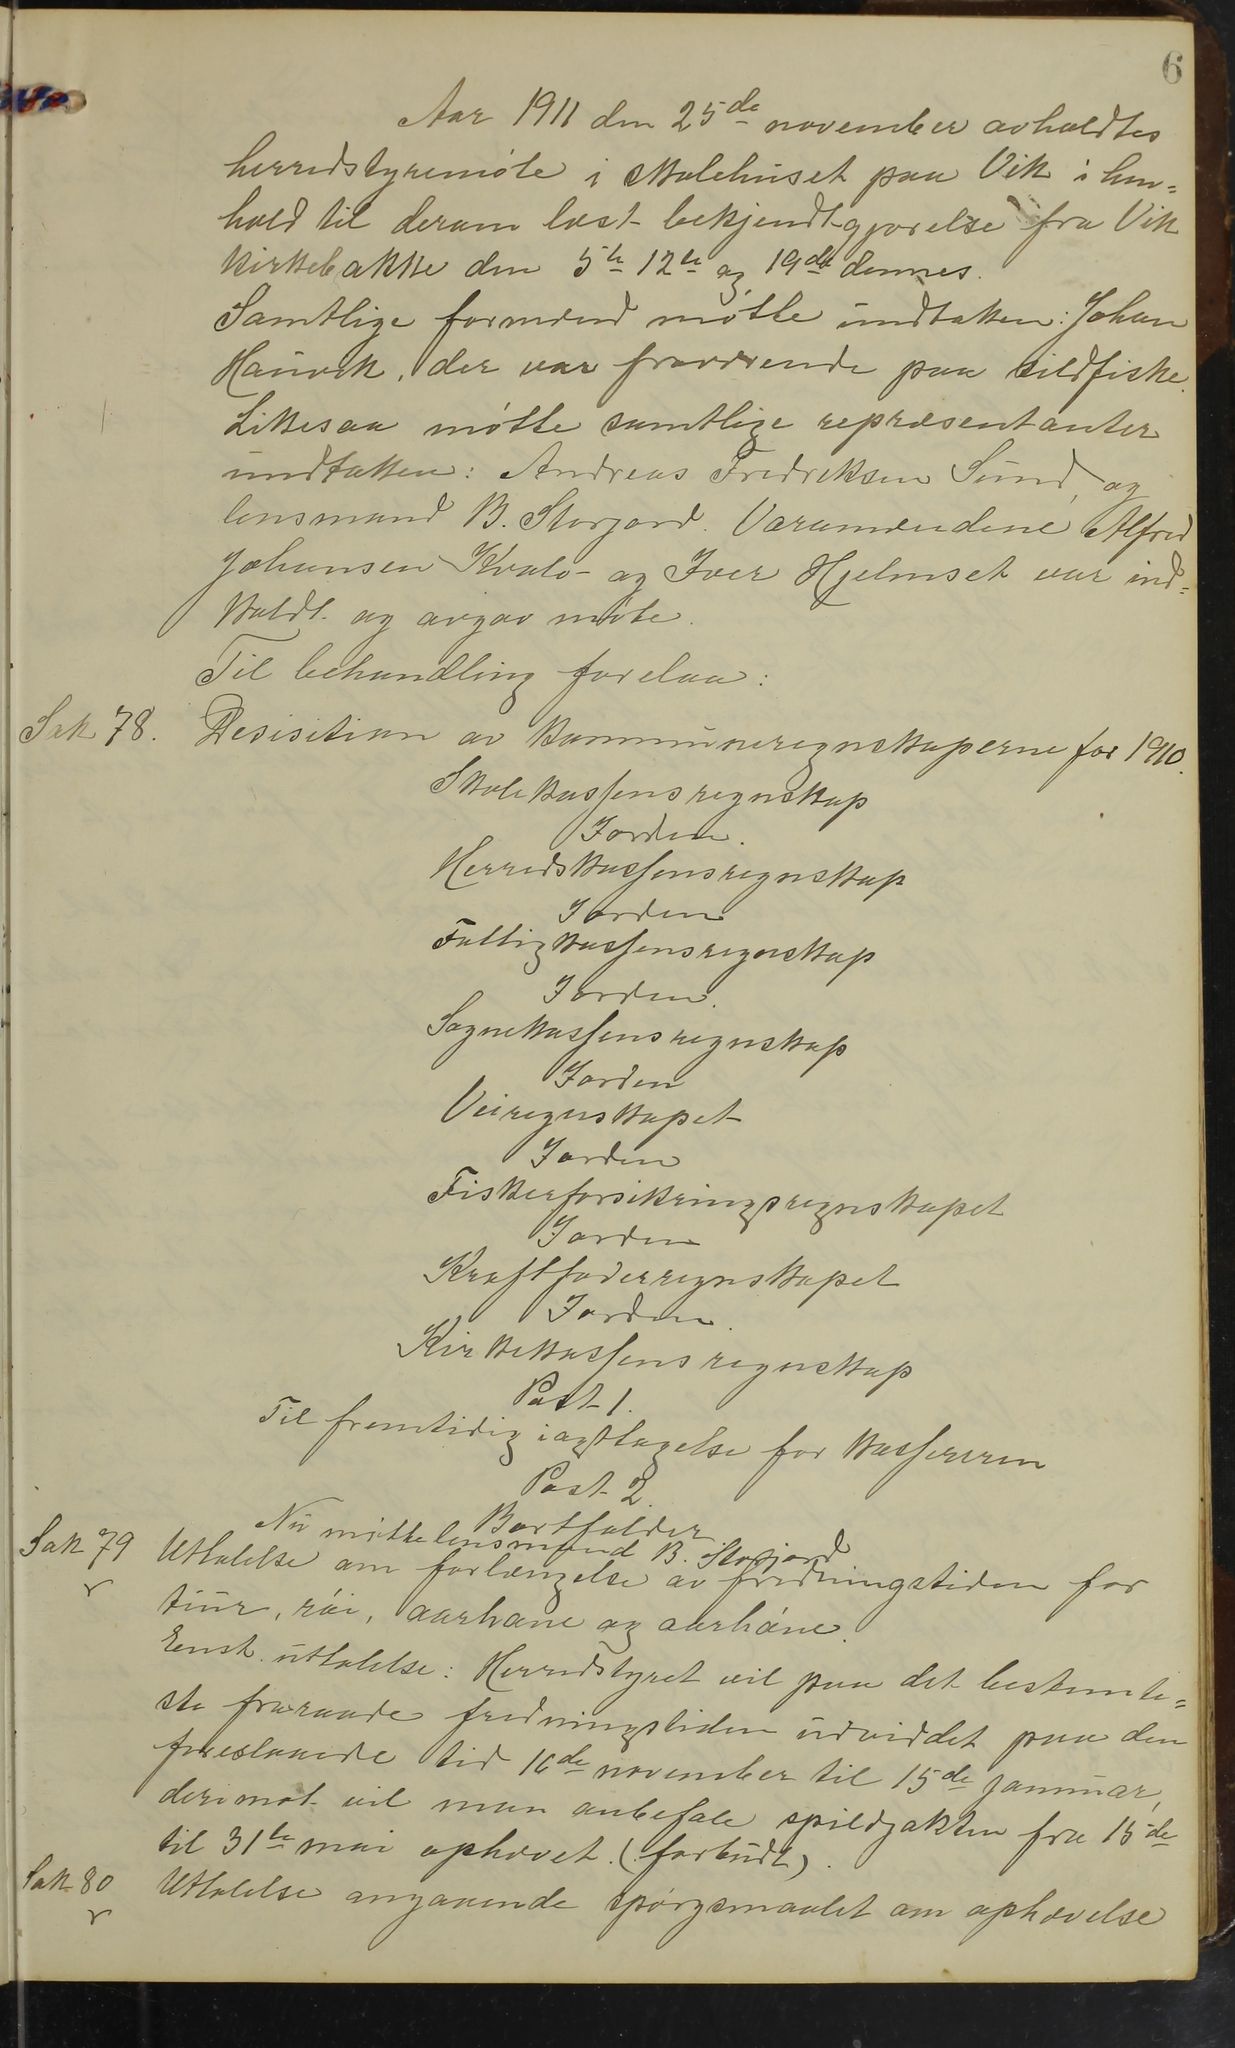 6
Aar 1911 den 25de november avholdtes
herredstyremöte i skolehuset paa Vik i hen=
hold til derom læst bekjendtgjørelse fra Vik
kirkebakke den 5te 12te og 19de dennes.
Samtlige formænd mötte undtatten: Johan
Hauvik, der var fraværende paa sildfiske.
Likesaa mötte samtlige repræsentanter
undtatten: Andreas Fredriksen Sund, og
lensmand B. Storjord. Varamændene Alfred
Johansen Kvalö og Iver Hjelmset var ind=
kaldt og avgav möte.
Til behandling forelaa:
Sak 78. Desisition av kommuneregnskaperne for 1910.
Skolekassens regnskap
I orden.
Herredskassens regnskap
I orden
Fattigkassens regnskap
I orden.
Sognekassens regnskap
I orden
Veiregnskapet
I orden
Fiskerforsikringsregnskapet
I orden
Kraftfoderregnskapet
I orden.
Kirkekassens regnskap
Post 1.
Til fremtidig iagttagelse for kassereren
Post 2.
Bortfalder
Nu mötte lensmand B. Storjord
Sak 79 Uttalelse om forlængelse av fredningstiden for
tiur, röi, aarhane og aarhöne.
Enst. uttalelse: Herredstyret vil paa det bestemte=
ste fraraade fredningstiden udvidet paa den
foreslaaede tid 16de november til 15de januar,
derimot vil man anbefale spildjakten fra 15de
til 31te mai ophævet. (forbudt).
Sak 80 Uttalelse angaaende spörgsmaalet om ophævelse